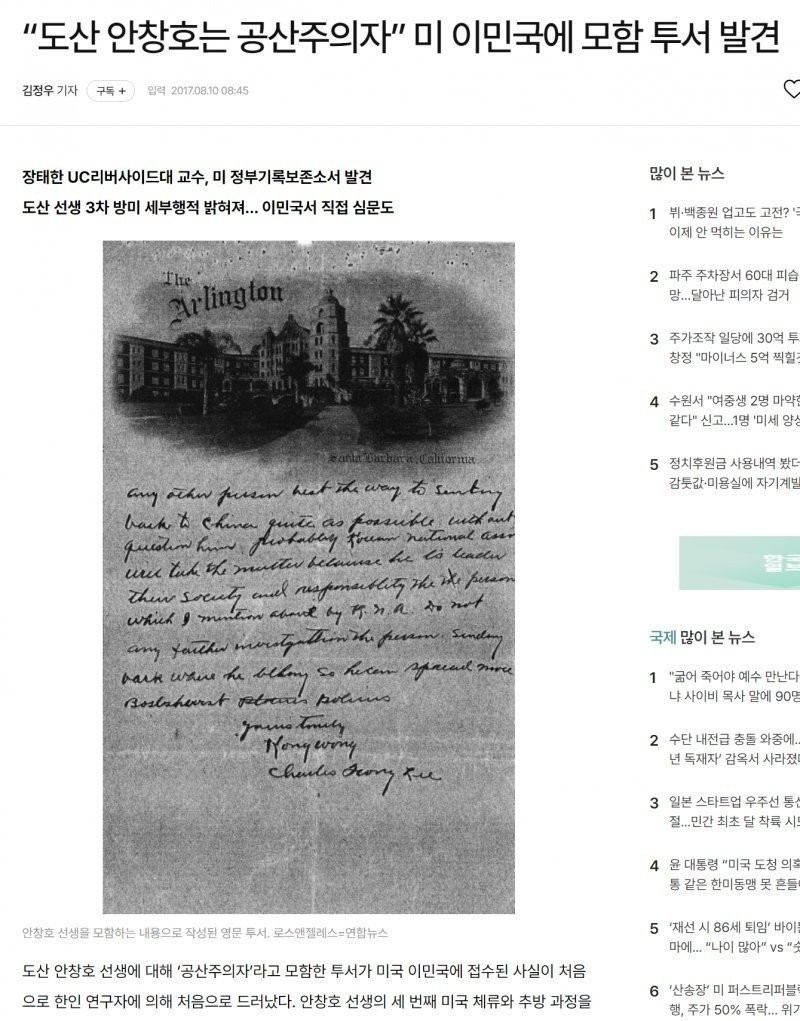 “도산 안창호는 공산주의자” 미 이민국에 모함 투서 발견
김정우 기자 구독 + 입력 2017.08.10 08:45
장태한 UC리버사이드대 교수, 미 정부기록보존소서 발견
도산 선생 3차 방미 세부행적 밝혀져... 이민국서 직접 심문도
The
Arlington
Santa Barbara, California
any other person best the way to sending
back to China quite as possible without
question him. probably Korean national assn
will take the matter because he is leader
their society and responsibility the the person
which I mention above by K. N. A. do not
any farther investigation the person. Sending
back where he belong so he can spread more
yours truly
Kong wong
Charles Hong Lee
안창호 선생을 모함하는 내용으로 작성된 영문 투서. 로스앤젤레스=연합뉴스
도산 안창호 선생에 대해 ‘공산주의자’라고 모함한 투서가 미국 이민국에 접수된 사실이 처음
으로 한인 연구자에 의해 처음으로 드러났다. 안창호 선생의 세 번째 미국 체류와 추방 과정을
많이 본 뉴스
1 뷔·백종원 업고도 고전? '국
이제 안 먹히는 이유는
2 파주 주차장서 60대 피습
망...달아난 피의자 검거
3 주가조작 일당에 30억 투
창정 "마이너스 5억 찍힐것
4 수원서 "여중생 2명 마약한
같다" 신고...1명 '미세 양성
5 정치후원금 사용내역 봤더
감튓값·미용실에 자기계발
한국
일보
국제 많이 본 뉴스
1 "굶어 죽어야 예수 만난다
냐 사이비 목사 말에 90명
2 수단 내전급 충돌 와중에...
년 독재자’ 감옥서 사라졌다
3 일본 스타트업 우주선 통신
절...민간 최초 달 착륙 시도
4 윤 대통령 “미국 도청 의혹
통 같은 한미동맹 못 흔들어
5 ‘재선 시 86세 퇴임’ 바이든
마에... “나이 많아” vs “숫
6 ‘산송장’ 미 퍼스트리퍼블릭
행, 주가 50% 폭락... 위기